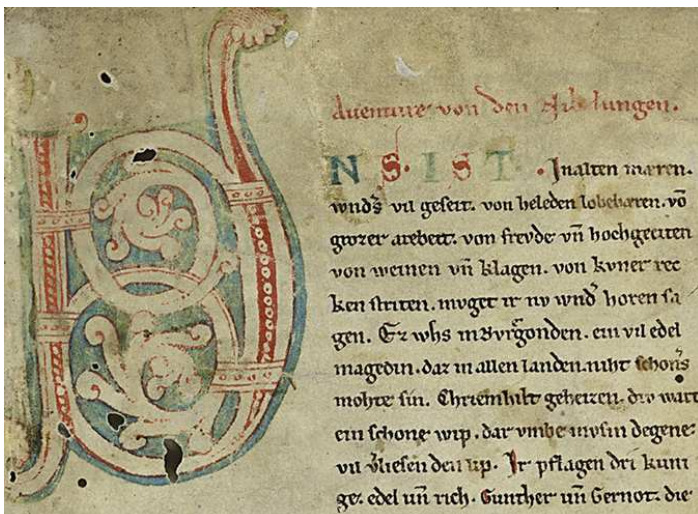 Auenture von den Nibelungen.
VNS. IST. Inalten mæren.
wnds vil geseit. von heleden lobebæren. vō
grozer arebeit. von frevde vn̄ hochgeciten
von weinen vn̄ klagen. von kvner rec
ken striten. mvget ir nv wnd horen sa
gen. Ez whs inBvrgonden. ein vil edel
magedin. daz in allen landen. niht schons
mohte sin. Chriemhilt geheizen. div wart
ein schone wip. dar vmbe mvsin degene
vil vliesen den lip. Ir pflagen dri kuni
ge. edel vn̄ rich. Gunther vn̄ Gernot. die